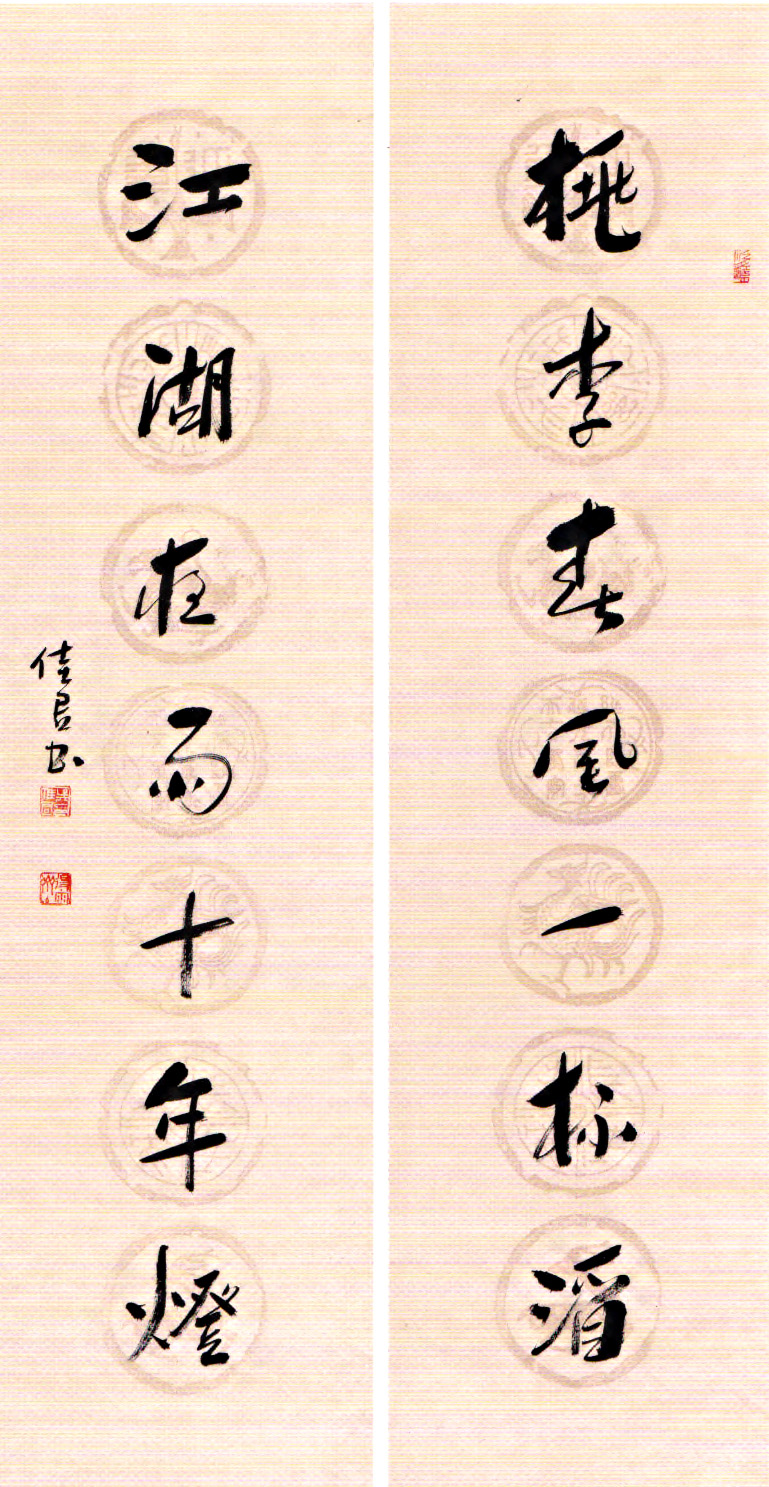 桃李春风一杯酒
江湖夜雨十年燈
佳君书